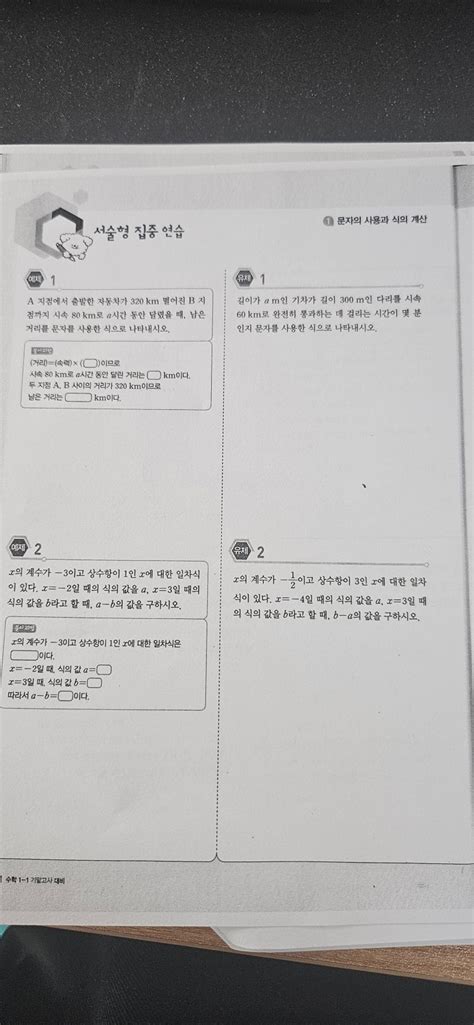 서술형 집중 연습
1 문자의 사용과 식의 계산
예제 1
A 지점에서 출발한 자동차가 320 km 떨어진 B 지
점까지 시속 80 km로 a시간 동안 달렸을 때, 남은
거리를 문자를 사용한 식으로 나타내시오.
풀이과정
(거리)=(속력)×( )이므로
시속 80 km로 a시간 동안 달린 거리는 km이다.
두 지점 A, B 사이의 거리가 320 km이므로
남은 거리는 km이다.
유제 1
길이가 a m인 기차가 길이 300 m인 다리를 시속
60 km로 완전히 통과하는 데 걸리는 시간이 몇 분
인지 문자를 사용한 식으로 나타내시오.
예제 2
x의 계수가 -3이고 상수항이 1인 x에 대한 일차식
이 있다. x=-2일 때의 식의 값을 a, x=3일 때의
식의 값을 b라고 할 때, a-b의 값을 구하시오.
풀이과정
x의 계수가 -3이고 상수항이 1인 x에 대한 일차식은
이다.
x=-2일 때, 식의 값 a=
x=3일 때, 식의 값 b=
따라서 a-b= 이다.
유제 2
x의 계수가 -1/2이고 상수항이 3인 x에 대한 일차
식이 있다. x=-4일 때의 식의 값을 a, x=3일 때
의 식의 값을 b라고 할 때, b-a의 값을 구하시오.
수학 1-1 기말고사 대비